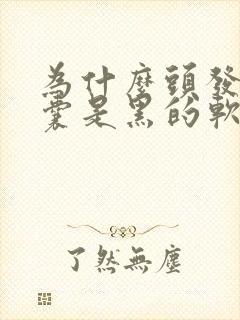 為什麼頭發
囊是黑的軟
了然無塵